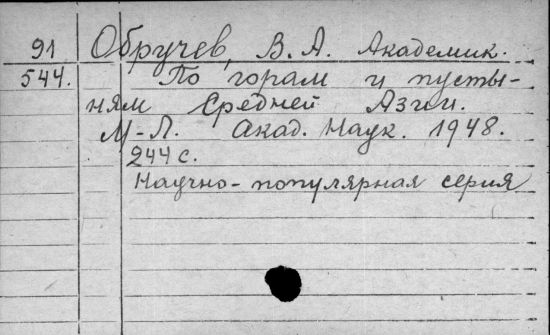 91 Обручев, В. А. Академик.
544. По горам и пусты-
ням Средней Азии.
М-Л. Акад. Наук. 1948.
244 с.
Научно-популярная серия